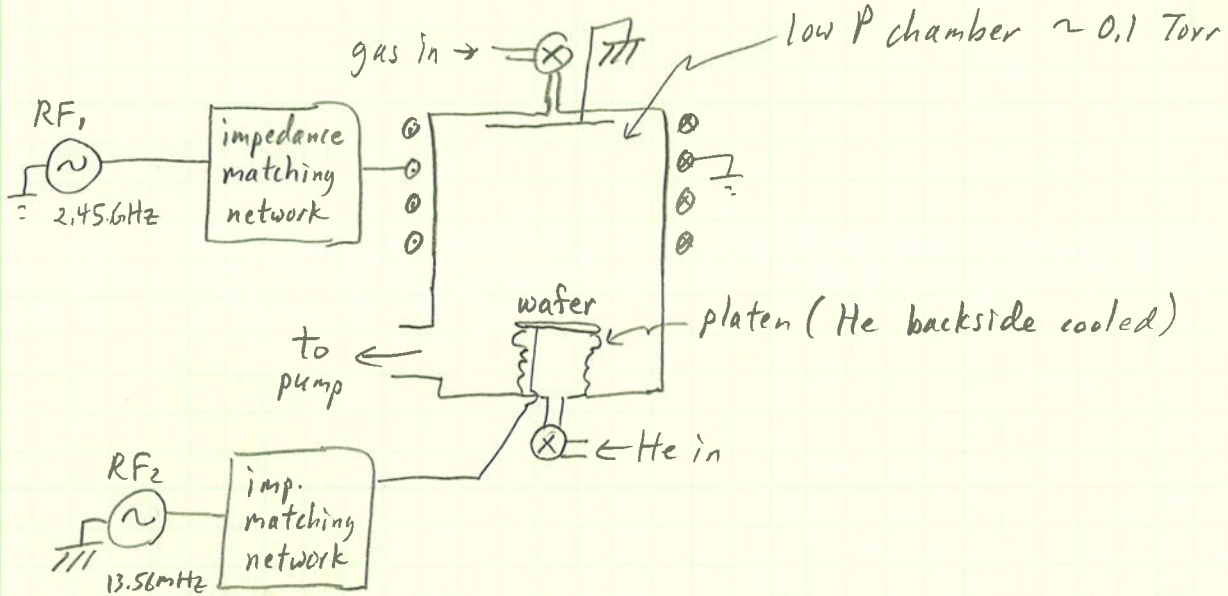 gas in →
low P chamber ~ 0.1 Torr
RF₁
2.45.GHz
impedance
matching
network
wafer
platen (He backside cooled)
to
pump
← He in
RF₂
13.56mHz
imp.
matching
network